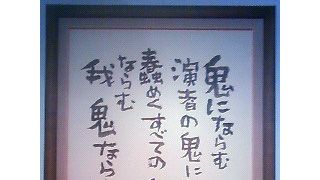 鬼にならむ
演者の鬼に
蠢めくすべての
ならむ
我 鬼なら